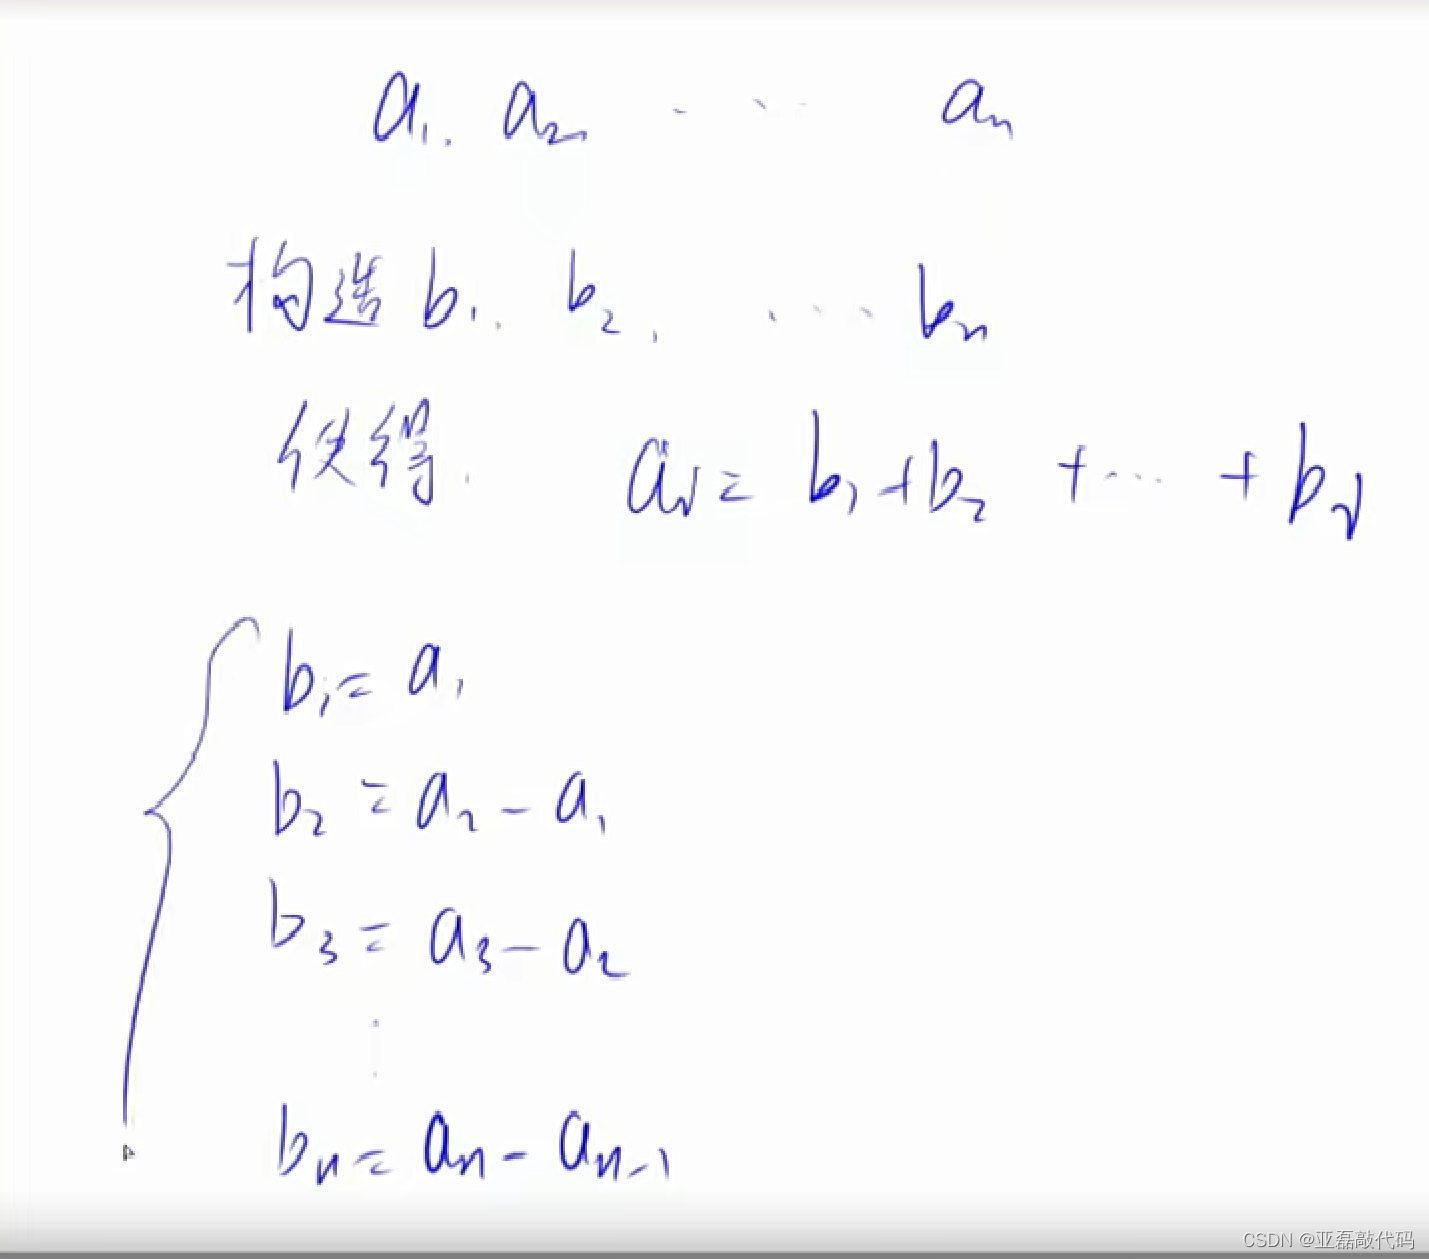 a₁, a₂ ⋯ aₙ
构造 b₁, b₂, ⋯ bₙ
使得. aᵢ = b₁ + b₂ + ⋯ + bᵢ
b₁ = a₁
b₂ = a₂ - a₁
b₃ = a₃ - a₂
⋮
bₙ = aₙ - aₙ₋₁
CSDN @亚磊敲代码